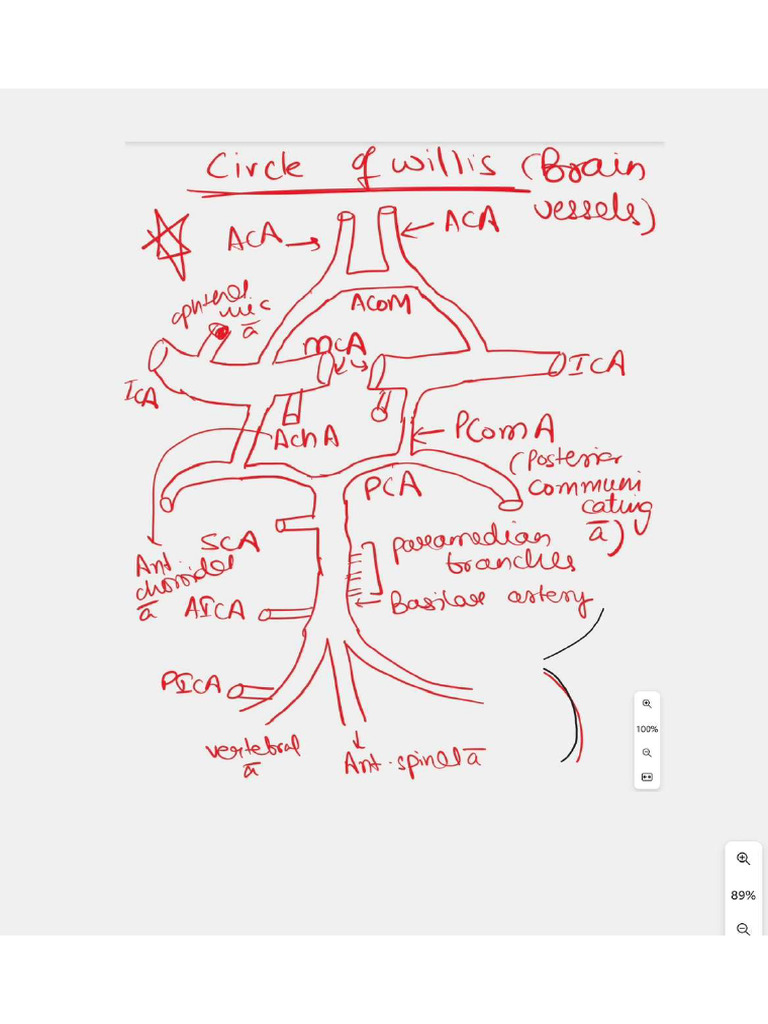 Circle of willis (Brain
vessels)
ACA
ACA
ACOM
ophthal
mic
ā
MCA
ICA
ICA
AchA
PComA
(Posterior
communi
cating
ā)
PCA
SCA
paramedian
branches
Ant.
choroidal
ā
AICA
Basilar artery
PICA
vertebral
ā
Ant. spinal ā
100%
89%